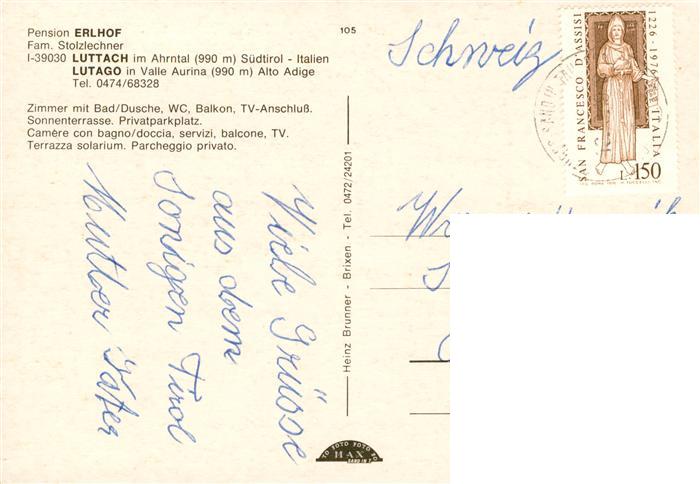 Pension ERLHOF
Fam. Stolzlechner
I-39030 LUTTACH im Ahrntal (990 m) Südtirol - Italien
LUTAGO in Valle Aurina (990 m) Alto Adige
Tel. 0474/68328
Zimmer mit Bad/Dusche, WC, Balkon, TV-Anschluß.
Sonnenterrasse. Privatparkplatz.
Camère con bagno/doccia, servizi, balcone, TV.
Terrazza solarium. Parcheggio privato.
Viele Grüsse
aus dem
Sonigen Tirol
Mutter Vater
105
Heinz Brunner - Brixen - Tel. 0472/24201
FOTO FOTO FOTO
MAX
SAND IN T.
Schweiz
SAN FRANCESCO D'ASSISI
1226-1976
ITALIA
L. 150